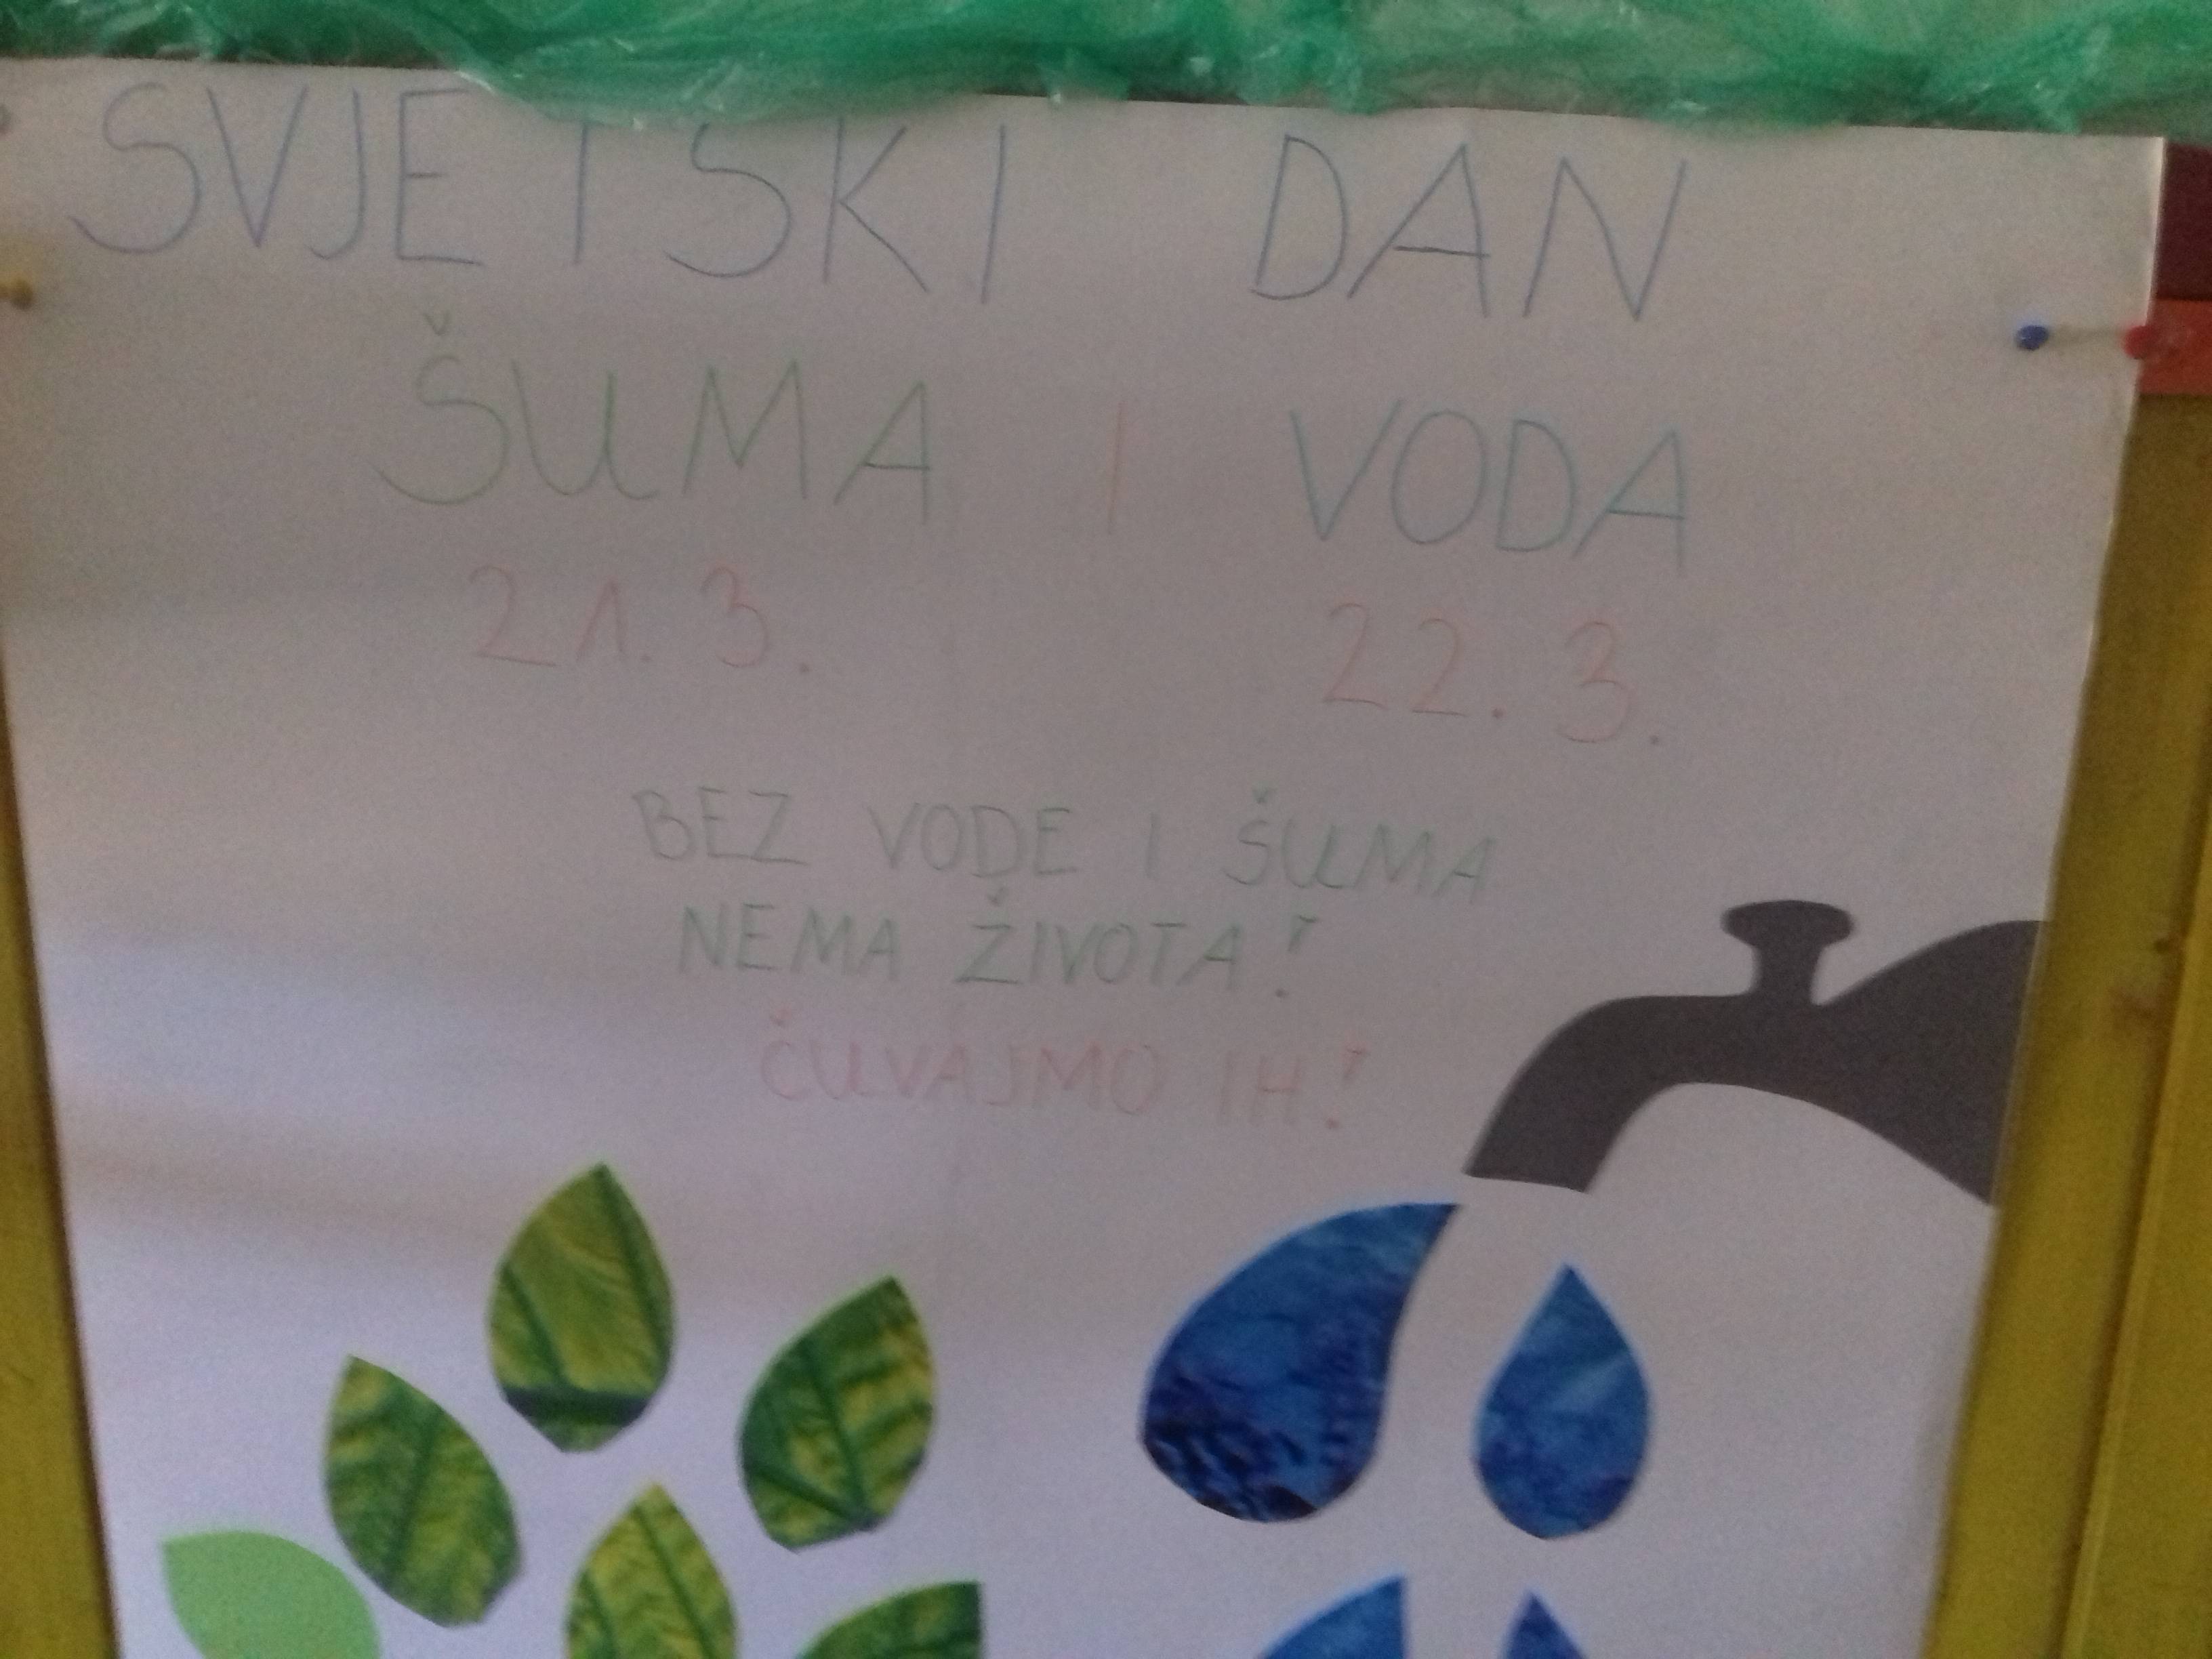 SVJETSKI DAN
ŠUMA I VODA
21. 3. 22. 3.
BEZ VODE I ŠUMA
NEMA ŽIVOTA!
ČUVAJMO IH!